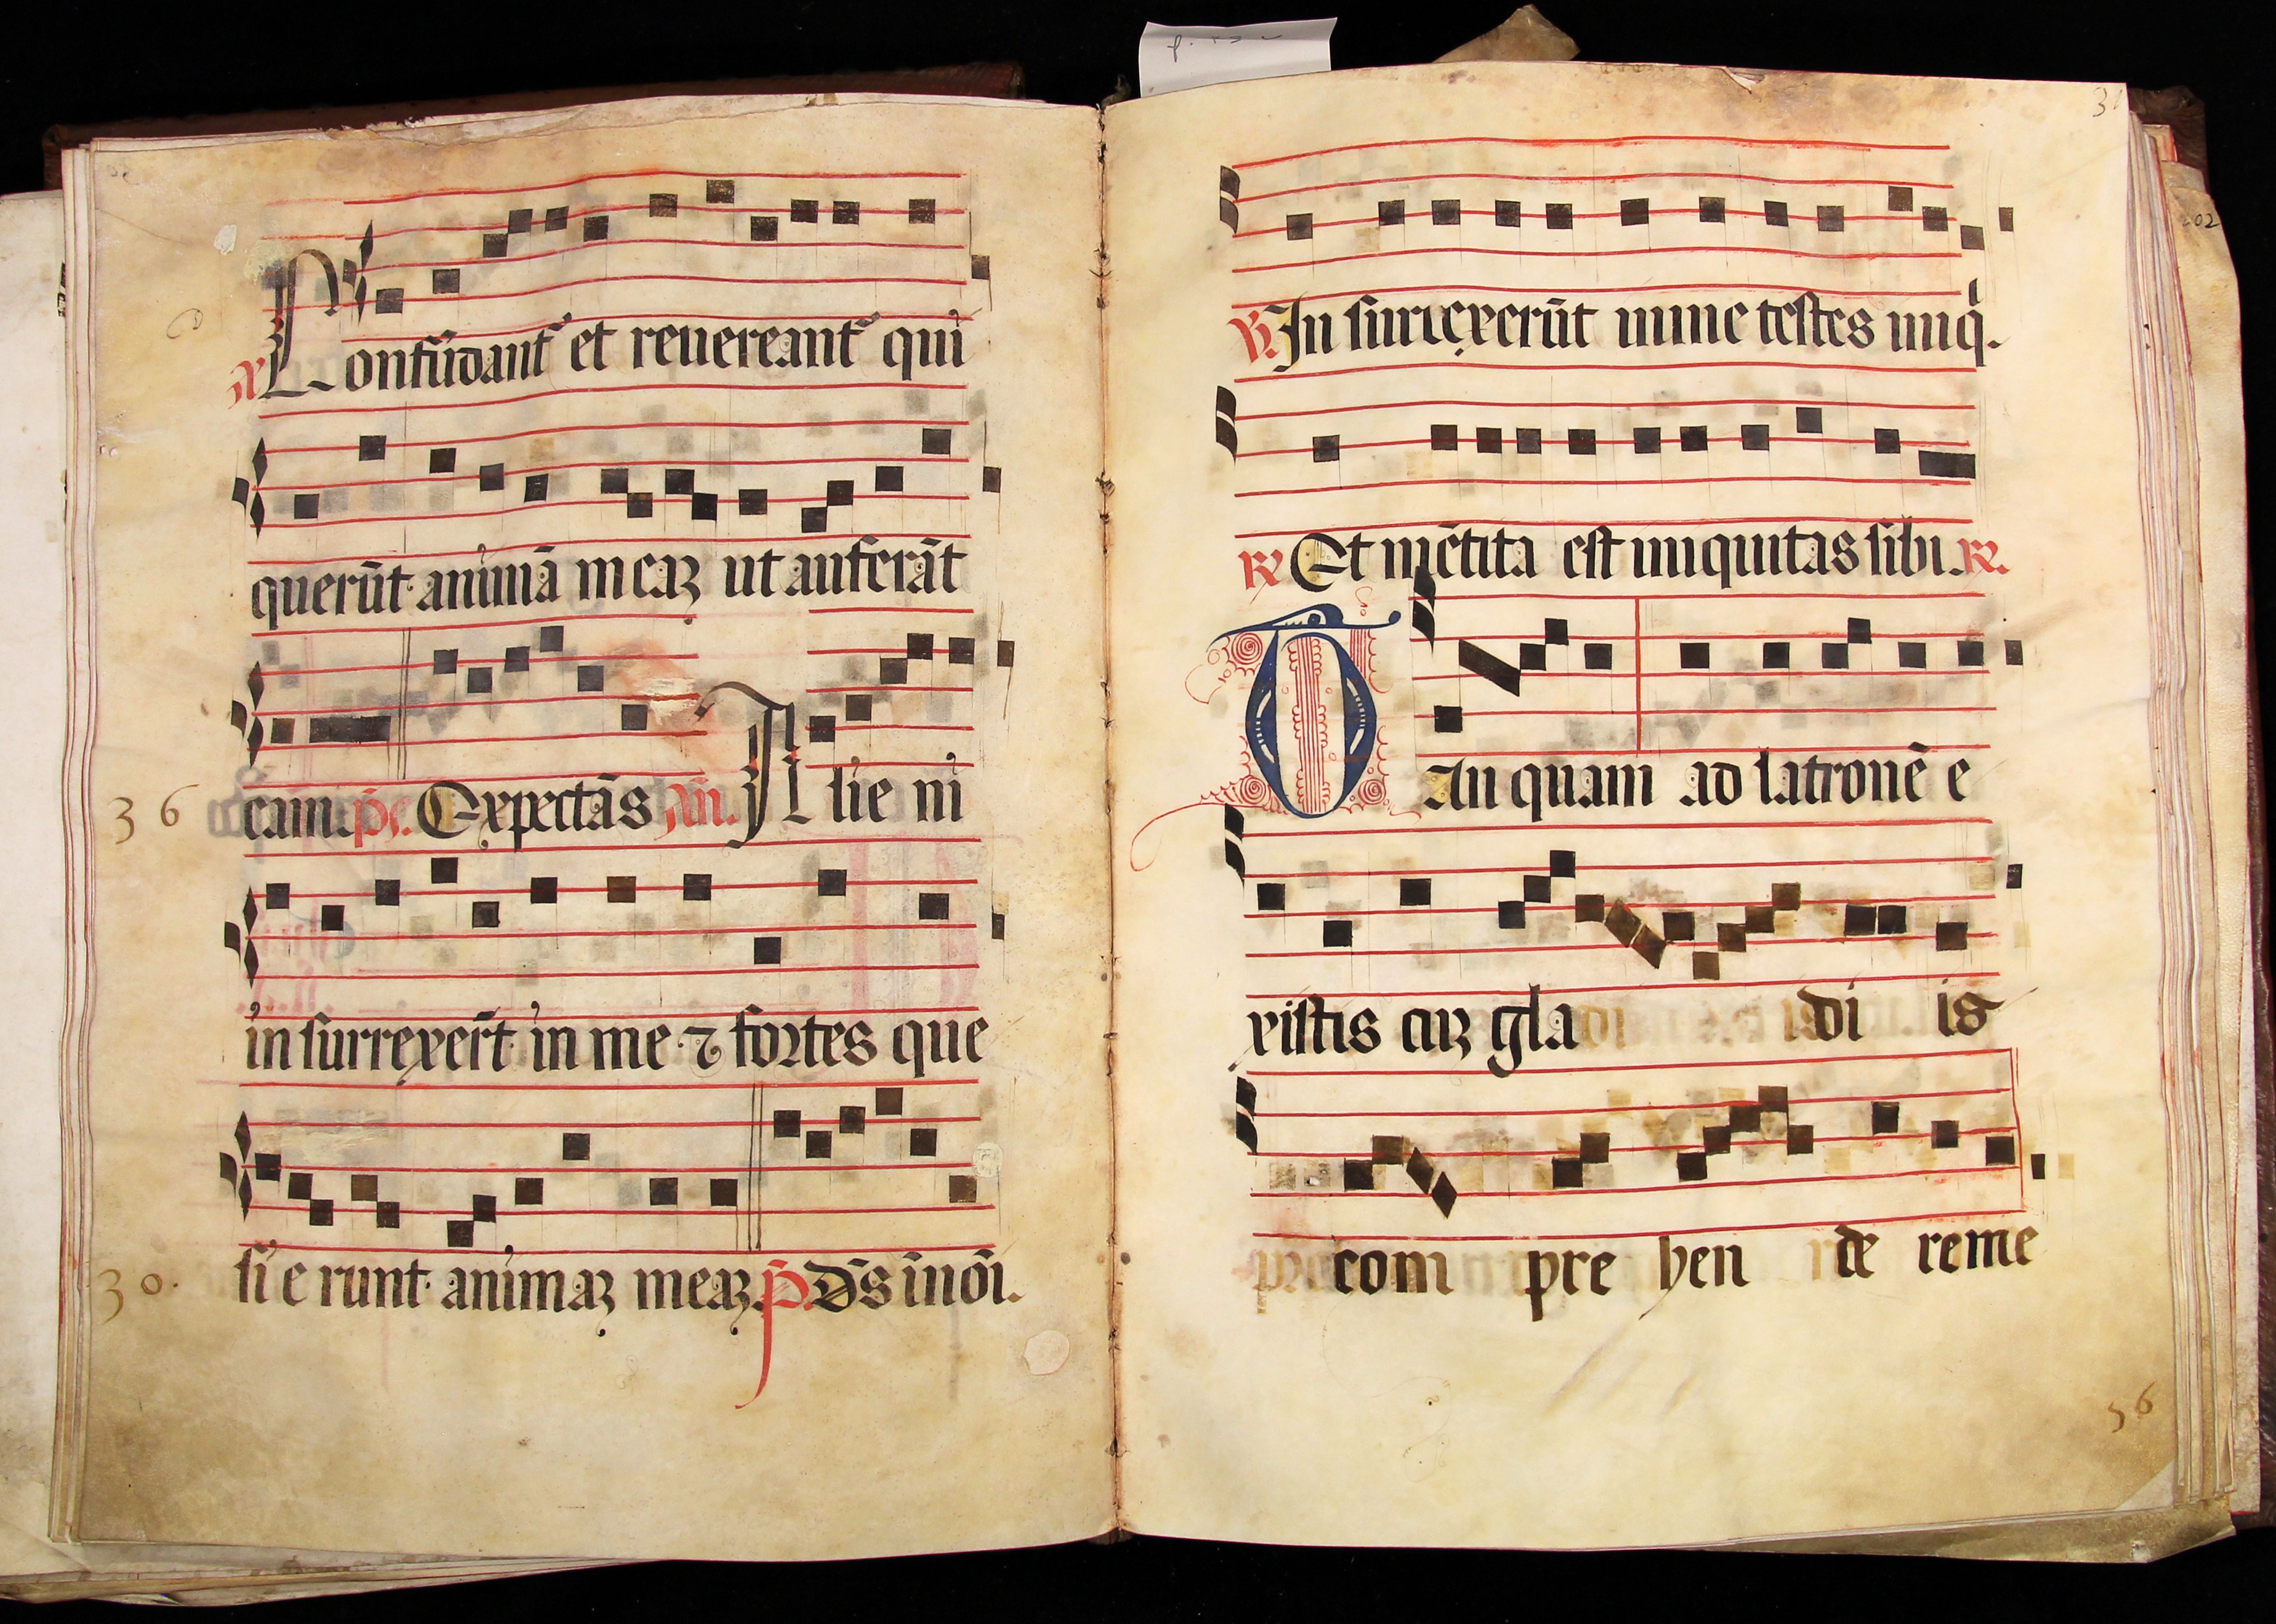 Confūdant et reuereant qui
querūt animā meaꝫ ut auferāt
36 eam. ps. Expectās añ. Alie ni
in surrexert̄ in me ⁊ fortes que
30. si e runt animaꝫ meaꝫ. p̄. Ds̄ īnoī.
31
℣. In surrexerūt in me testes iniq̇.
℟ Et mētita est iniquitas sibi. ℟.
TAn quam ad latronē e
xistis cuꝫ gla di is
com pre hen de reme
56
202